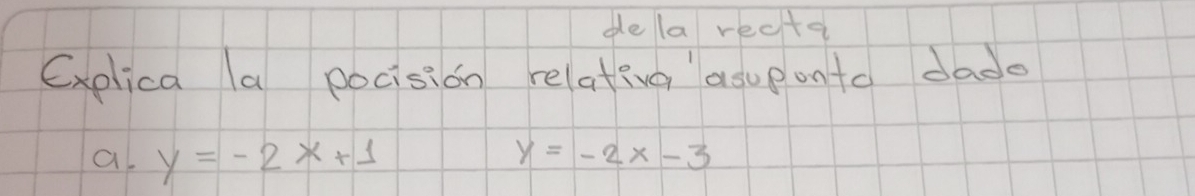 de la recta
Explica la pocisión relativa ' a su ponto dado
a. y = -2x+1 y = -2x-3